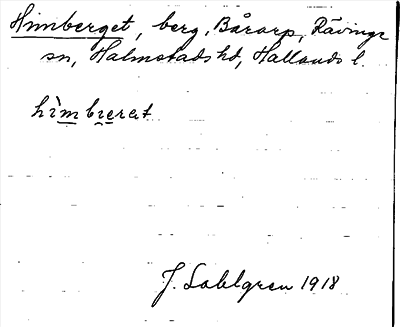 Himberget, berg, Bårarp, Rävinge
sn, Halmstads hd, Hallands l.
hìmbærat
J. Sahlgren 1918